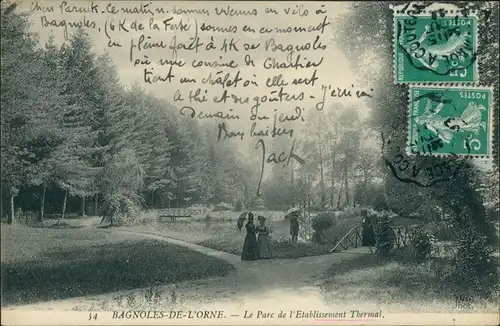 Cher Parent. Ce matin, sommes venus en vélo à
Bagnoles, (6K de la Ferté) sommes en ce moment
en pleine forêt à 4K de Bagnoles
où une cousine de
Chartier
tient un chalet où elle sert
le thé et des goûters - J'écrirai
demain ou jeudi
Bons baisers
Jack
POSTES
5
POSTES
5
54 BAGNOLES-DE-L'ORNE. - Le Parc de l'Etablissement Thermal.